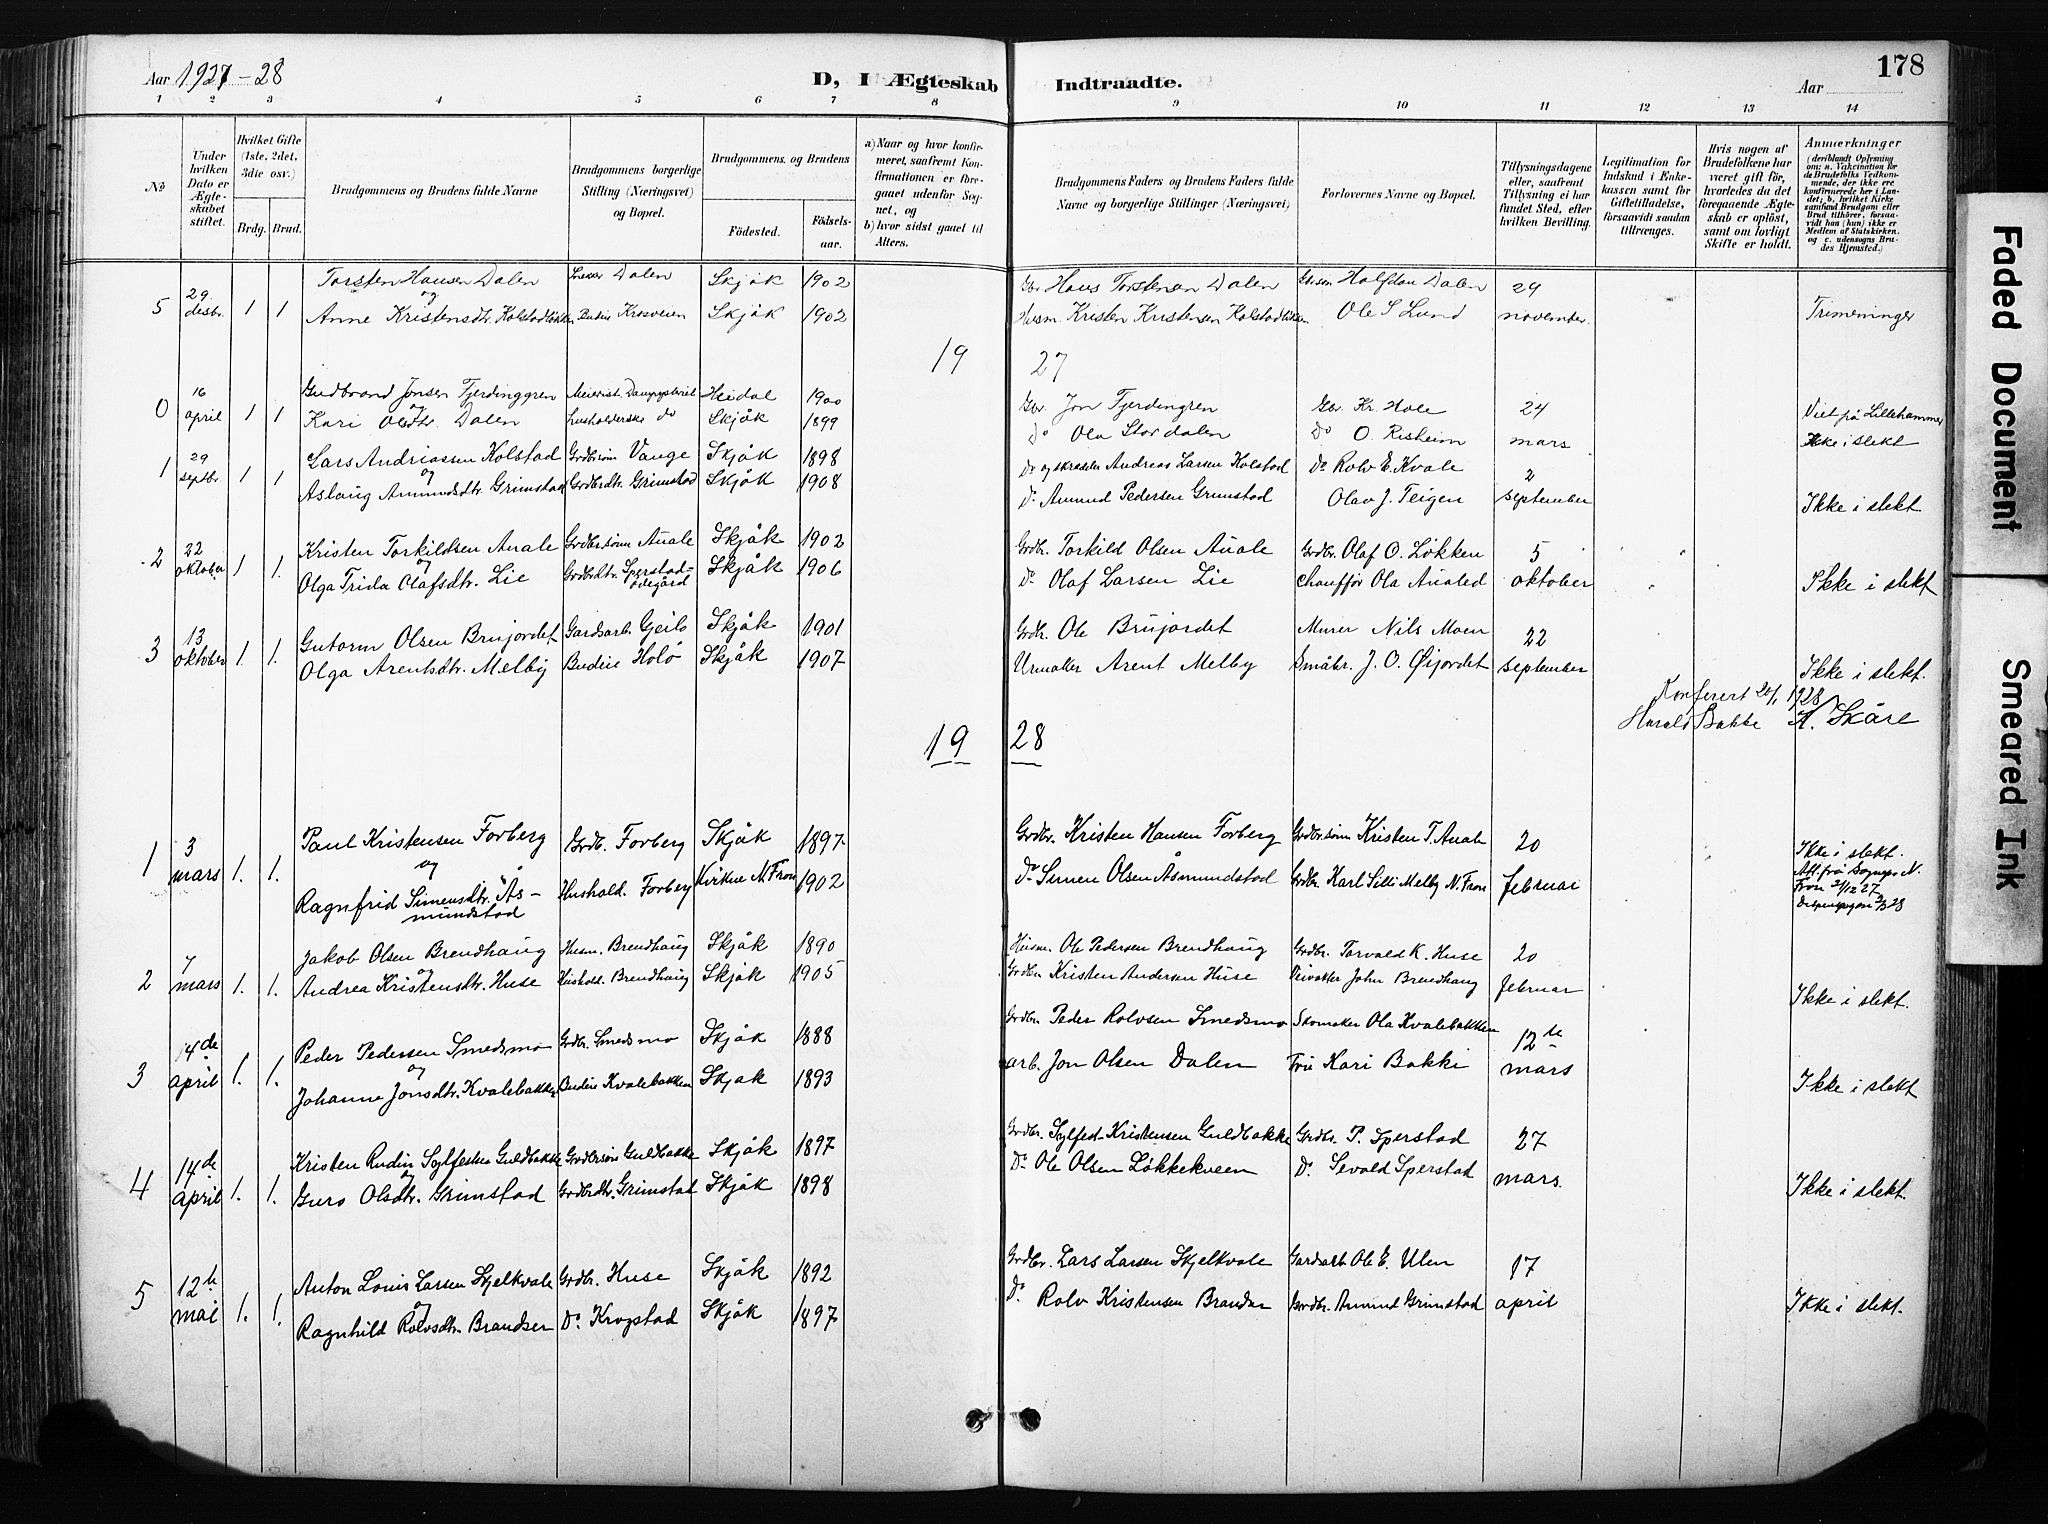 Aar 1927-28
D, I Ægteskab Indtraadte.
Aar
178
1 2 3 4 5 6 7 8 9 10 11 12 13 14
No
Under hvilken Dato er Ægteskabet stiftet.
Hvilket Gifte (1ste, 2det, 3die osv.)
Brdg. Brud.
Brudgommens og Brudens fulde Navne
Brudgommens borgerlige Stilling (Næringsvei) og Bopæl.
Brudgommens og Brudens
Fødested.
Fødselsaar.
a) Naar og hvor konfirmeret, saafremt Konfirmationen er foregaaet udenfor Sognet, og
b) hvor sidst gaaet til Alters.
Brudgommens Faders og Brudens Faders fulde Navne og borgerlige Stillinger (Næringsvei)
Forlovernes Navne og Bopæl.
Tillysningsdagene eller, saafremt Tillysning ei har fundet Sted, efter hvilken Bevilling.
Legitimation for Indskud i Enkekassen samt for Giftetilladelse, forsaavidt saadan tiltrænges.
Hvis nogen af Brudefolkene har været gift før, hvorledes da det foregaaende Ægteskab er opløst, samt om lovligt Skifte er holdt.
Anmærkninger (deriblandt Oplysning om: a. Vakcination for de Brudefolks Vedkommende, der ikke ere konfirmerede her i Landet; b. hvilket Kirkesamfund Brudgom eller Brud tilhører, forsaavidt han (hun) ikke er Medlem af Statskirken, og c. udensogns Brudes Hjemsted.
Torsten Hansen Dalen Dalen Skjåk 1902 Gbr. Hans Torstensen Dalen Halfdan Dalen 29
5 29 desbr. 1 1 og
Anne Kristensdtr. Kolstadløkken Budeie Krosveien Skjåk 1902 Husm. Kristen Kristensen Kolstadløkken Ole S Lund november Tremenninger
19 27
0 16 april 1 1 Gudbrand Jonsen Tjerdinggren Meierist Heidal 1900 Gbr. Jon Tjerdingren Gbr. Kr. Hole 24 Viet på Lillehammer
Kari Olsdtr. Dalen do Skjåk 1899 Do Ola Stordalen Do O. Risheim mars Ikke i slekt
1 29 septbr. 1 1 Lars Andreassen Kolstad Grdbrsønn Vange Skjåk 1898 Do og skredder Andreas Larsen Kolstad Do Rolv E. Kvale 2
og
Aslaug Amundsdtr. Grimstad Grdbrdtr. Grimstad Skjåk 1908 Do Amund Pedersen Grimstad Olav J. Teigen september Ikke i slekt
2 22 oktober 1 1. Kristen Torkildsen Auale Grdbr.sønn Auale Skjåk 1902 Grdbr. Torkild Olsen Auale Grdbr. Olaf O. Løkken 5
og
Olga Frida Olafsdtr. Lie Grdbrdtr. Sperstadødegård Skjåk 1906 Do Olaf Larsen Lie Chauffør Ola Austed oktober Ikke i slekt
3 13 oktober 1. 1. Gutorm Olsen Brujordet Gardsarb. Geilo Skjåk 1901 Grdbr. Ole Brujordet Murer Nils Moen 22
Olga Arentsdtr. Melby Budeie Holø Skjåk 1907 Urmaker Arent Melby Småbr. J. O. Øijordet september Ikke i slekt.
Konferert 20/1 1928
Harald Bakke A. Skåre
19 28
1 3 mars 1. 1. Paul Kristensen Forberg Grdb. Forberg Skjåk 1897 Grdbr. Kristen Hansen Forberg Grdbr.sønn Kristen T. Auale 20 Ikke i slekt.
og
Ragnfrid Simensdtr. Åsmundstad Hushold. Forberg Kvikne N. Fron 1902 Do Simen Olsen Åsmundstad Grdbr. Karl Silli Melby N. Fron februar Att. fra Sognepr. N. Fron 2/12 27
2 7 mars 1. 1. Jakob Olsen Brendhaug Husm. Brendhaug Skjåk 1890 Husm. Ole Pedersen Brendhaug Grdbr. Torvald K. Huse 20
og
Andrea Kristensdtr. Huse Hushold. Brendhaug Skjåk 1905 Grdbr. Kristen Andersen Huse Veivokter John Brendhaug februar Ikke i slekt.
3 14de april 1. 1. Peder Pedersen Smedsmo Grdbr. Smedsmo Skjåk 1888 Grdbr. Peder Rolvsen Smedsmo Skomaker Ola Kvalebakken 12te
og
Johanne Jonsdtr. Kvalebakken Budeie Kvalebakken Skjåk 1893 arb. Jon Olsen Dalen Fru Kari Bakki mars Ikke i slekt
4 14de april 1. 1. Kristen Rudin Sylfesten Guldbakke Grdbrsønn Guldbakke Skjåk 1897 Grdbr. Sylfest Kristensen Guldbakke Grdbr. P. Sperstad 27
og
Guro Olsdtr. Grimstad Grdbrdtr. Grimstad Skjåk 1898 Do Ole Olsen Løkkekveen Do Sevald Sperstad mars. Ikke i slekt.
5 12te mai 1. 1. Anton Louis Larsen Skjelkvale Grdbr. Huse Skjåk 1892 Grdbr. Lars Larsen Skjelkvale Gardsarb Ole E. Ulen 17
og
Ragnhild Rolvsdtr. Brandser Do Krogstad Skjåk 1897 Do Rolv Kristensen Grdbr. Amund Grimstad april Ikke i slekt.
Faded Document
Smeared Ink